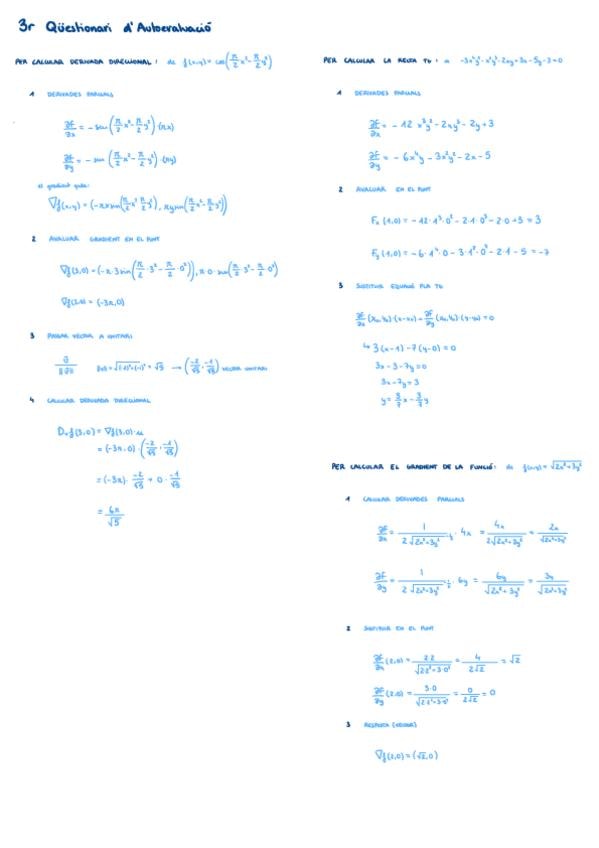 3r Qüestionari d'Autoavaluació
PER CALCULAR DERIVADA DIRECCIONAL: de f(x,y) = cos(π/2 x² - π/2 y²)
1 DERIVADES PARCIALS
∂f/∂x = - sin(π/2 x² - π/2 y²)·(πx)
∂f/∂y = - sin(π/2 x² - π/2 y²)·(πy)
el gradient queda:
∇f(x,y) = (-πx sin(π/2 x² π/2 y²), πy sin(π/2 x² - π/2 y²))
2 AVALUAR GRADIENT EN EL PUNT
∇f(3,0) = (-π·3 sin(π/2·3² - π/2·0²)), π·0·sin(π/2·3² - π/2·0²)
∇f(3,0) = (-3π,0)
3 PASSAR VECTOR A UNITARI
√(-2)²+(-1)² = √5 → (-2/√5, -1/√5) VECTOR UNITARI
4 CALCULAR DERIVADA DIRECCIONAL
Dᵤf(3,0) = ∇f(3,0)·u
= (-3π,0)·(-2/√5, -1/√5)
= (-3π)·-2/√5 + 0·-1/√5
= 6π/√5
PER CALCULAR LA RECTA TG: a -3x⁴y²-x³y³-2xy+3x-5y-3=0
1 DERIVADES PARCIALS
∂f/∂x = - 12 x³y² - 2xy³ - 2y + 3
∂f/∂y = - 6x⁴y - 3x²y² - 2x - 5
2 AVALUAR EN EL PUNT
Fx (1,0) = -12·1³·0² - 2·1·0³ - 2·0 + 3 = 3
Fy (1,0) = -6·1⁴·0 - 3·1²·0² - 2·1 - 5 = -7
3 SUBSTITUIR EQUACIÓ PLA TG
∂f/∂x (x₀,y₀)·(x-x₀) + ∂f/∂y (x₀,y₀)·(y-y₀) = 0
↳ 3(x-1) - 7(y-0) = 0
3x - 3 - 7y = 0
3x - 7y = 3
y = 3/7 x - 3/7 y
PER CALCULAR EL GRADIENT DE LA FUNCIÓ: de f(x,y) = √2x²+3y²
1 CALCULAR DERIVADES PARCIALS
∂f/∂x = 1/2√2x²+3y² · 4x = 4x/2√2x²+3y² = 2x/√2x²+3y²
∂f/∂y = 1/2√2x²+3y² · 6y = 6y/√2x²+3y² = 3y/√2x²+3y²
2 SUBSTITUIR EN EL PUNT
∂f/∂x (2,0) = 2·2/√2·2²+3·0² = 4/2√2 = √2
∂f/∂y (2,0) = 3·0/√2·2²+3·0² = 0/2√2 = 0
3 RESPOSTA (VECTOR)
∇f(2,0) = (√2,0)